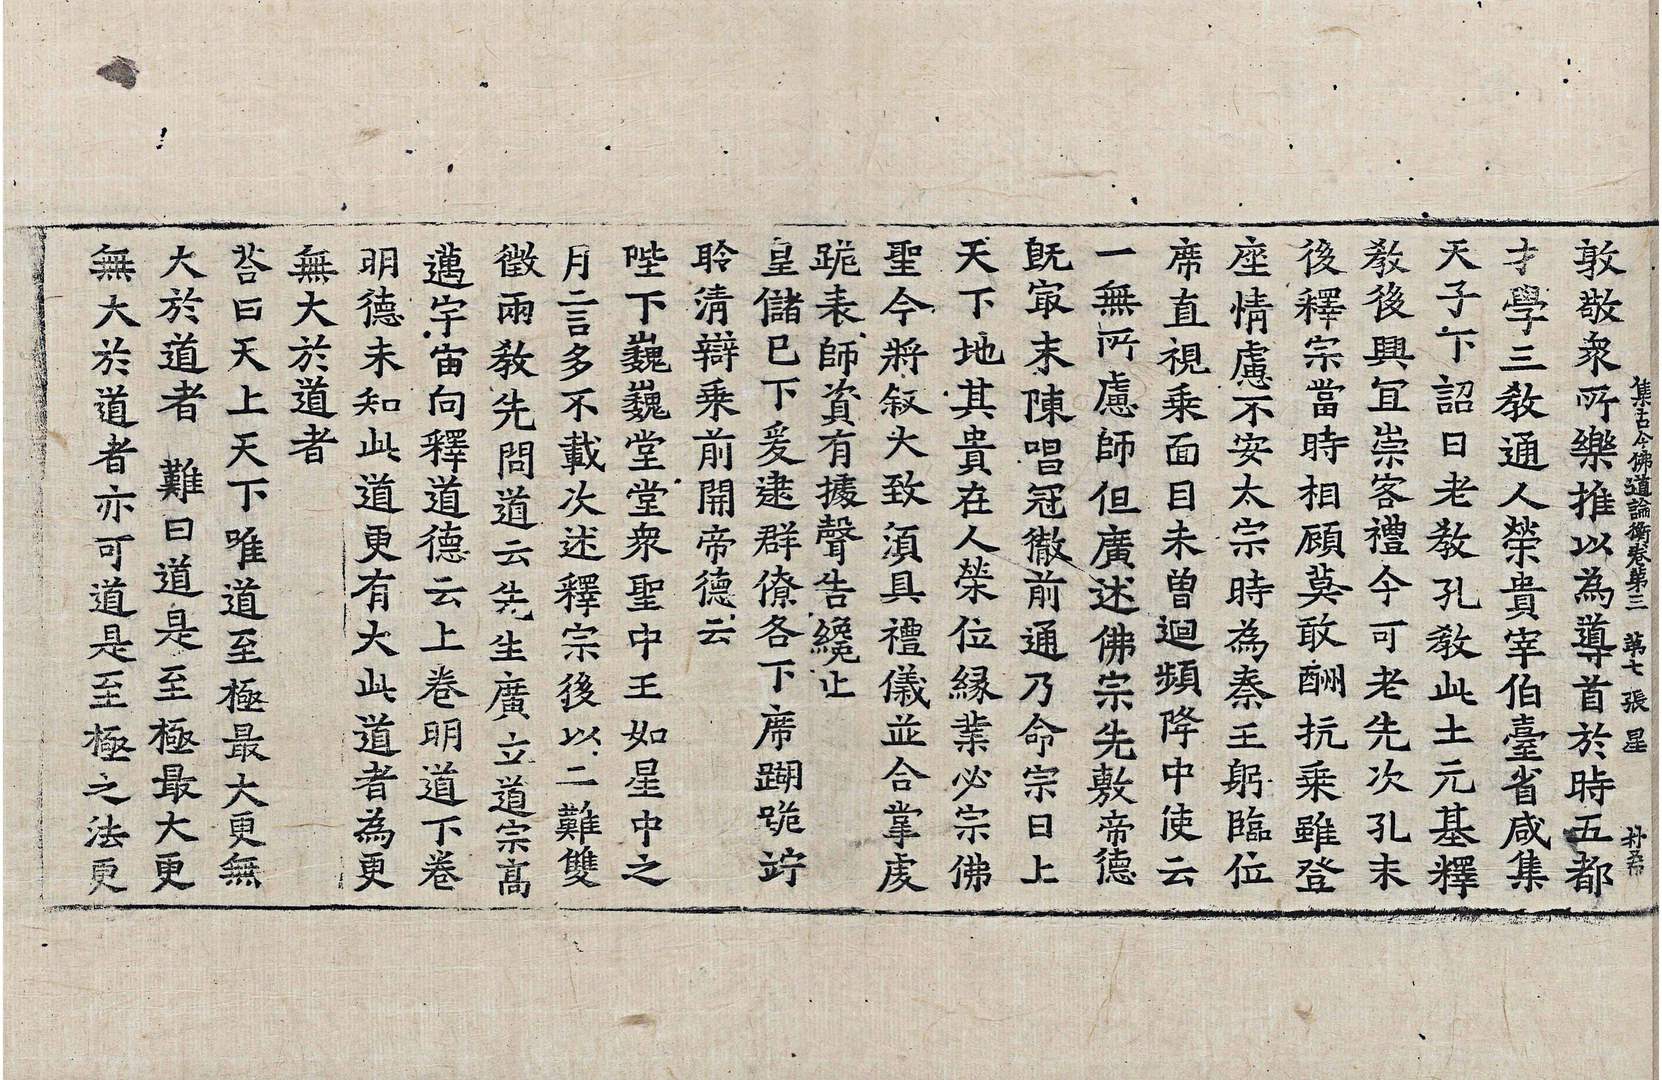 集古今佛道論衡卷第三 第七張 星
敦敬衆所樂推以為導首於時五都
才學三敎通人榮貴宰伯臺省咸集
天子下詔曰老敎孔敎此土元基釋
敎後興宜崇客禮今可老先次孔末
後釋宗當時相顧莫敢酬抗乘雖登
座情慮不安太宗時為秦王躬臨位
席直視乘面目未曾迴頻降中使云
一無所慮師但廣述佛宗先敷帝德
旣㝡末陳唱冠徹前通乃命宗曰上
天下地其貴在人榮位緣業必宗佛
聖今將叙大致須具禮儀並合掌虔
跪表師資有據聲告纔止
皇儲已下爰逮群僚各下席䠒跪竚
聆清辯乘前開帝德云
陛下巍巍堂堂衆聖中王如星中之
月二言多不載次述釋宗後以二難雙
徵兩敎先問道云先生廣立道宗高
邁宇宙向釋道德云上卷明道下卷
明德未知此道更有大此道者為更
無大於道者
荅曰天上天下唯道至極最大更無
大於道者　難曰道是至極最大更
無大於道者亦可道是至極之法更